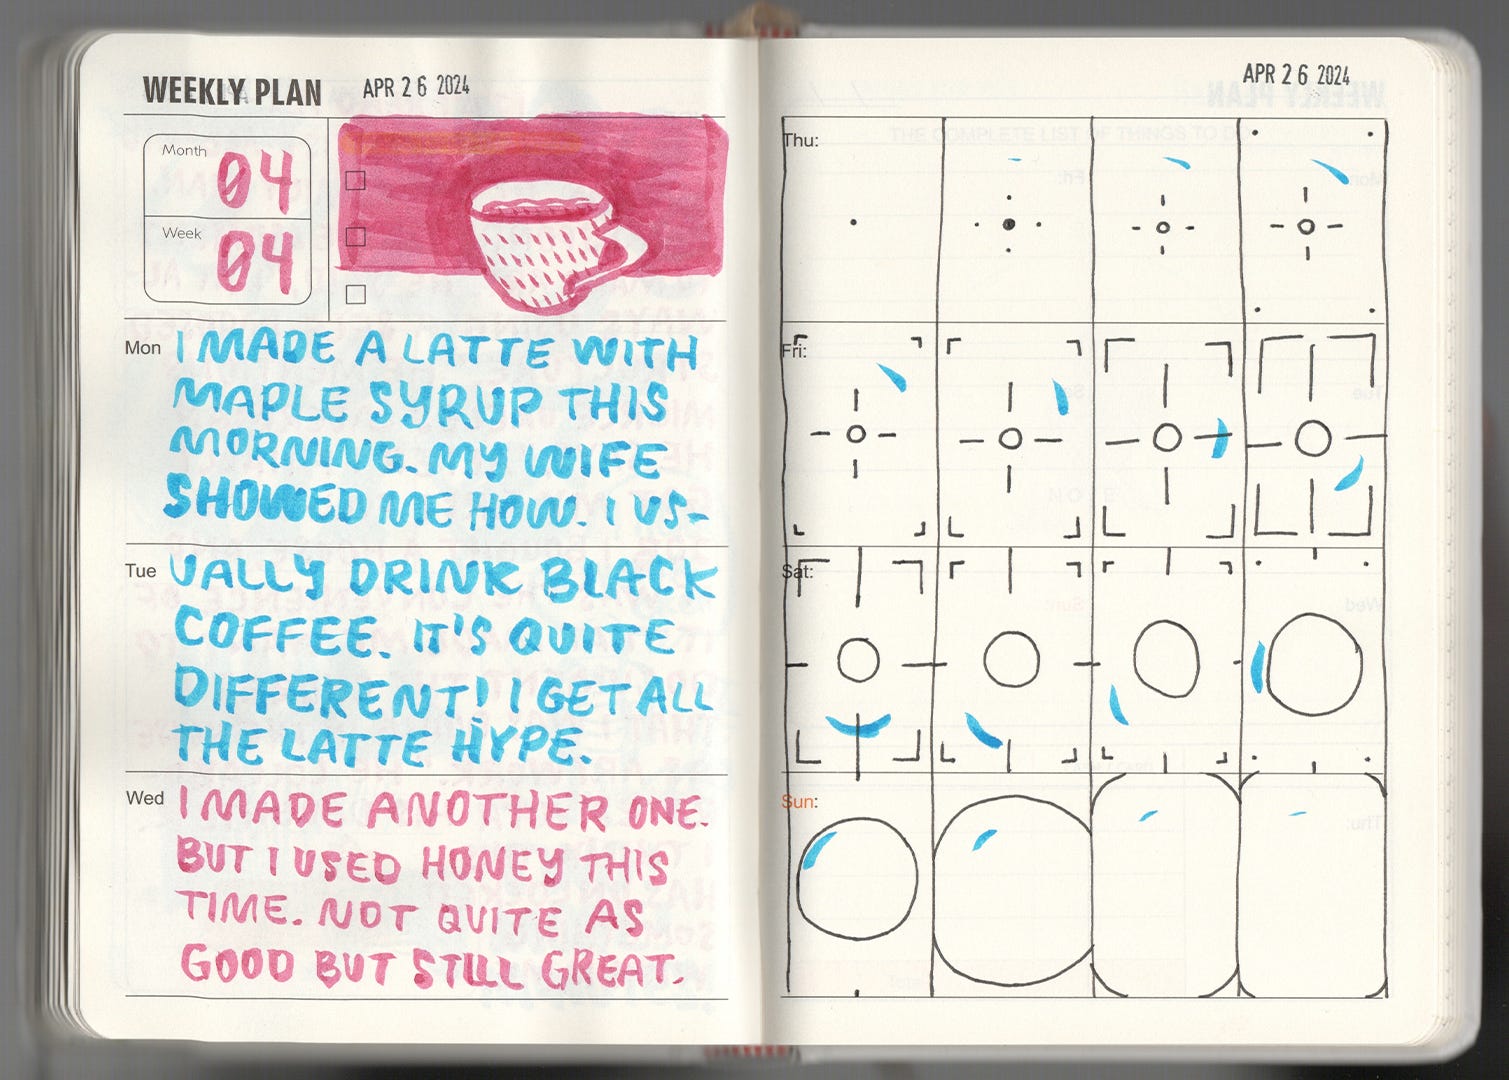 WEEKLY PLAN APR 26 2024
Month 04
Week 04
Mon I MADE A LATTE WITH
MAPLE SYRUP THIS
MORNING. MY WIFE
SHOWED ME HOW. I US-
Tue UALLY DRINK BLACK
COFFEE. IT'S QUITE
DIFFERENT! I GET ALL
THE LATTE HYPE.
Wed I MADE ANOTHER ONE.
BUT I USED HONEY THIS
TIME. NOT QUITE AS
GOOD BUT STILL GREAT.
APR 26 2024
Thu:
Fri:
Sat:
Sun: